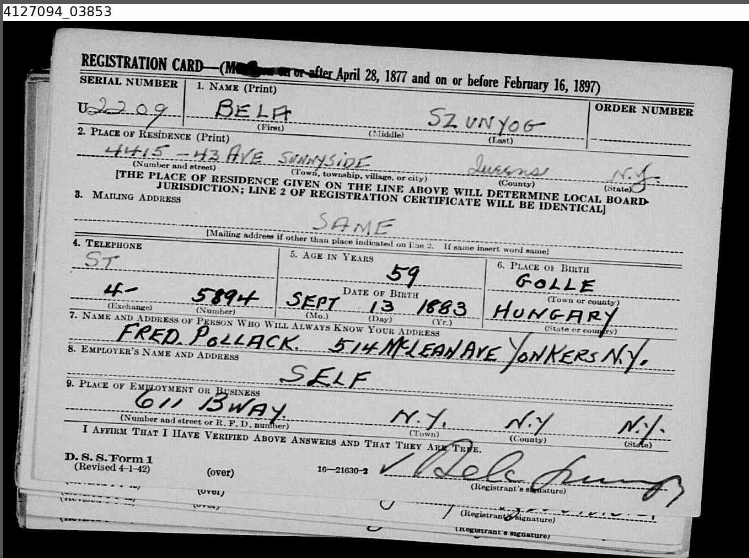 4127094_03853
REGISTRATION CARD—(M on or after April 28, 1877 and on or before February 16, 1897)
SERIAL NUMBER 1. NAME (Print) ORDER NUMBER
U 2209 BELA SZUNYOG
(First) (Middle) (Last)
2. PLACE OF RESIDENCE (Print)
4415 - 43 AVE SUNNYSIDE Queens N.Y.
(Number and street) (Town, township, village, or city) (County) (State)
[THE PLACE OF RESIDENCE GIVEN ON THE LINE ABOVE WILL DETERMINE LOCAL BOARD
JURISDICTION; LINE 2 OF REGISTRATION CERTIFICATE WILL BE IDENTICAL]
3. MAILING ADDRESS
SAME
[Mailing address if other than place indicated on line 2. If same insert word same]
4. TELEPHONE 5. AGE IN YEARS 6. PLACE OF BIRTH
ST 59 GOLLE
DATE OF BIRTH (Town or county)
4- 5894 SEPT 13 1883 HUNGARY
(Exchange) (Number) (Mo.) (Day) (Yr.) (State or country)
7. NAME AND ADDRESS OF PERSON WHO WILL ALWAYS KNOW YOUR ADDRESS
FRED. POLLACK. 514 McLEAN AVE YONKERS N.Y.
8. EMPLOYER'S NAME AND ADDRESS
SELF
9. PLACE OF EMPLOYMENT OR BUSINESS
611 BWAY. N.Y. N.Y N.Y.
(Number and street or R. F. D. number) (Town) (County) (State)
I AFFIRM THAT I HAVE VERIFIED ABOVE ANSWERS AND THAT THEY ARE TRUE.
D. S. S. Form 1
(Revised 4-1-42) (over) 16—21630-2 Bela
(Registrant's signature)
(over)
(Registrant's signature)
(over)
(Registrant's signature)